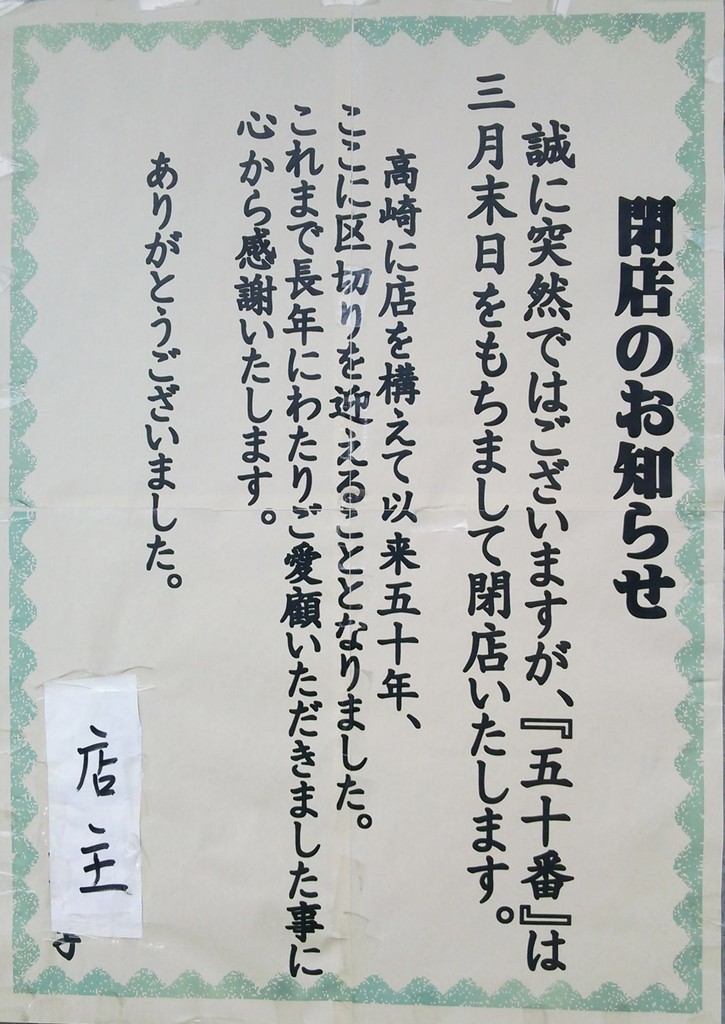 閉店のお知らせ
誠に突然ではございますが、『五十番』は
三月末日をもちまして閉店いたします。
高崎に店を構えて以来五十年、
ここに区切りを迎えることとなりました。
これまで長年にわたりご愛顧いただきました事に
心から感謝いたします。
ありがとうございました。
店主